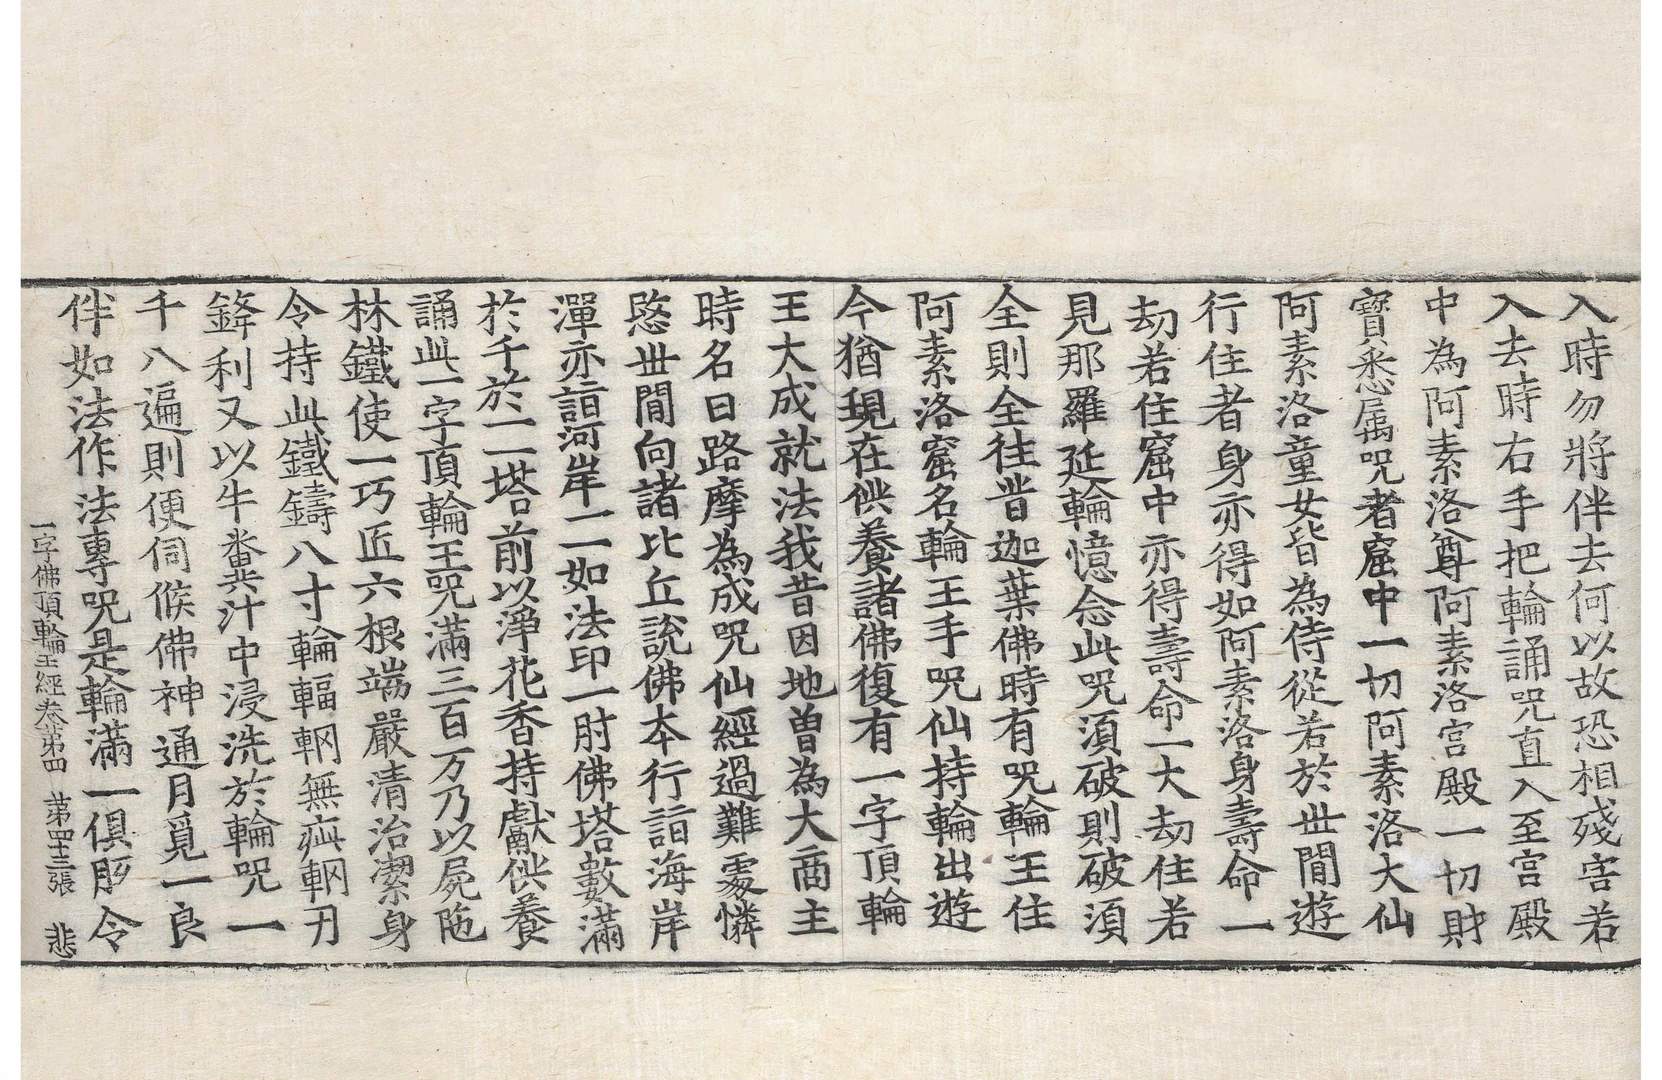 入時勿將伴去何以故恐相殘害若
入去時右手把輪誦呪直入至宮殿
中為阿素洛尊阿素洛宮殿一切財
寶悉属呪者窟中一切阿素洛大仙
阿素洛童女皆為侍從若於世閒遊
行住者身亦得如阿素洛身壽命一
劫若住窟中亦得壽命一大劫住若
見那羅延輪憶念此呪湏破則破湏
全則全往昔迦葉佛時有呪輪王住
阿素洛窟名輪王手呪仙持輪出遊
今猶現在供養諸佛復有一字頂輪
王大成就法我昔因地曽為大商主
時名曰路摩為成呪仙經過難處憐
愍世閒向諸比丘說佛夲行詣海岸
潬亦詣河岸一一如法印一肘佛塔數滿
於千於一一塔前以淨花香持獻供養
誦此一字頂輪王呪滿三百万乃以屍陁
林鐵使一巧匠六根端嚴清治潔身
令持此鐵鑄八寸輪輻輞無㢧輞刃
鋒利又以牛糞汁中浸洗於輪呪一
千八遍則便伺候佛神通月覓一良
伴如法作法專呪是輪滿一俱胝令
一字佛頂輪王經卷第四 第四十三張 悲